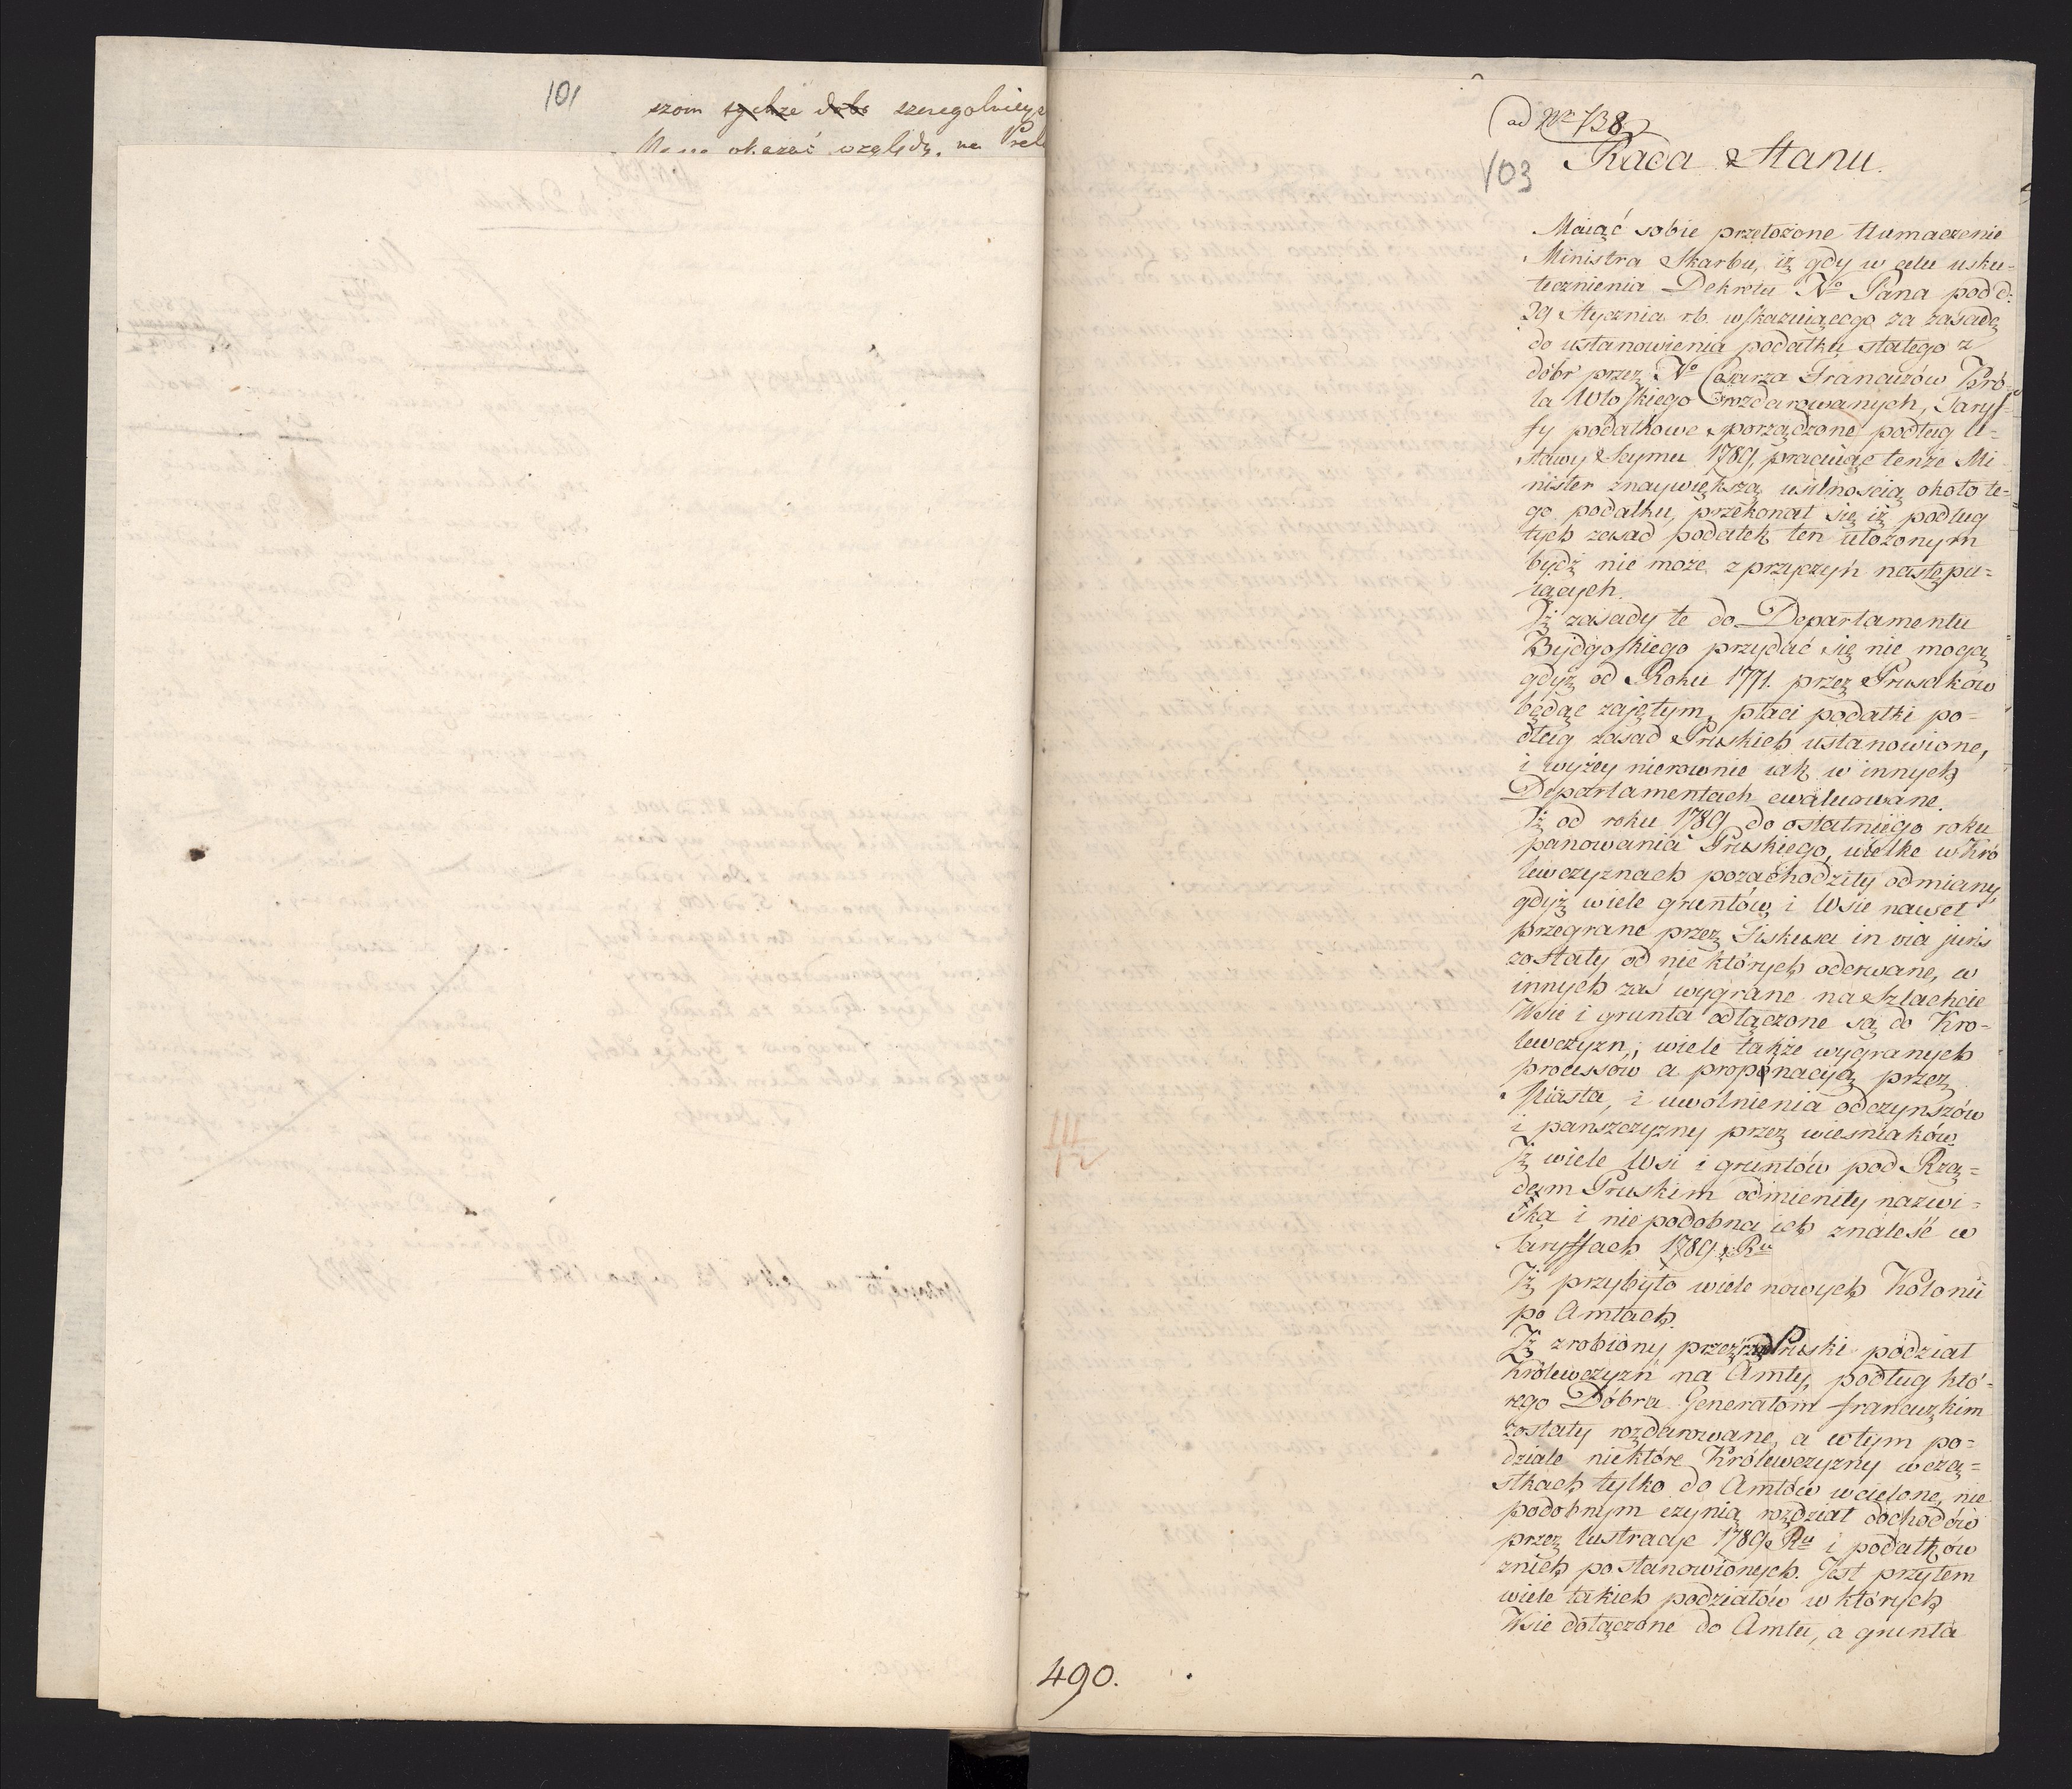 101
szom tychże dóbr szczegolnieysze
okazać względy. na
ad Nrm 738
103
Rada Stanu.
Maiąć sobie przełożone tłumaczenie
Ministra Skarbu, iż gdy w celu usku=
tecznienia Dekretu No Pana pod d:
29 Stycznia rb. wskazuiącego za zasadę
do ustanowienia podatku stałego z
dóbr przez No Cesarza Francuzów Kró=
la Włoskiego rozdarowanych, Taryf=
fy podatkowe sporządzone podług U=
stawy Seymu 1789, pracuiąc tenże Mi
nister znaywiększą usilnością około te=
go podatku, przekonał się iż podług
tych zasad podatek ten ułożonym
bydź nie może z przyczyń następu=
iących.
Iż zasady te do Departamentu
Bydgoskiego przydać się nie mogą
gdyż od Roku 1771. przez Prusaków
będąc zajętym, płaci podatki po=
dług zasad Pruskich ustanowione,
i wyżey nierownie iak w innych
Departamentach ewaluowane.
Iż od roku 1789 do ostatniego roku
panowania Pruskiego, wielke w Kró
lewczyznach pozachodziły odmiany,
gdyż wiele gruntów i Wsie nawet
przegrane przez Fiskusa in via juris
zostały od niektórych oderwane, w
innych zaś wygrane na Szlachcie
Wsie i grunta odłączone są do Kro=
lewczyzn; wiele także wygranych
processów a propinacyą przez
Miasta, i uwolnienia od czynszów
i panszczyzny przez wiesniaków
Iż wiele Wsi i gruntów pod Rzą=
dem Pruskim odmieniły nazwi=
ska i niepodobna ich znaleść w
taryffach 1789 Ru
Iż przybyło wiele nowych Kolonii
po Amtach.
Iż zrobiony przez rząd Pruski podział
Królewczyzń na Amty, podług któ=
rego Dóbra Generałom francuzkim
zostały rozdarowane, a w tym po=
dziale niektóre Królewczyzny w czą=
stkach tylko do Amtów wcielone, nie
podobnym czynią rozdział dochodów
przez lustracje 1789 Ru i podatków
znich postanowionych. Jest przytem
wiele takich podziałów w których
Wsie dołączone do Amtu, a grunta
490.